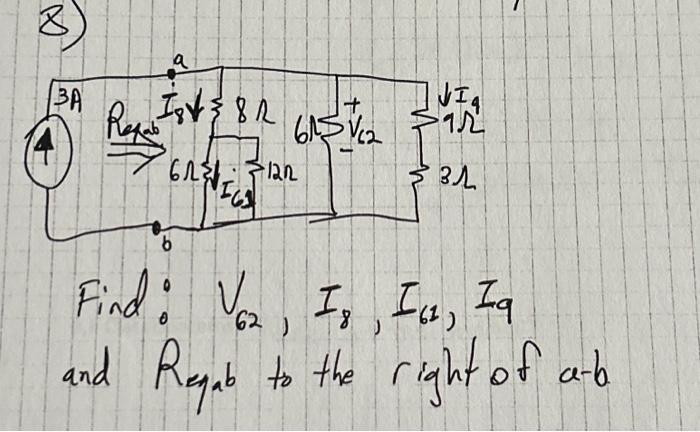 8)
a
3A
I8 ↓ 8Ω
Reqab
6Ω
+
V62
-
↓I9
9Ω
6Ω ↓ I61 12Ω
3Ω
b
Find: V62, I8, I61, I9
and Reqab to the right of a-b